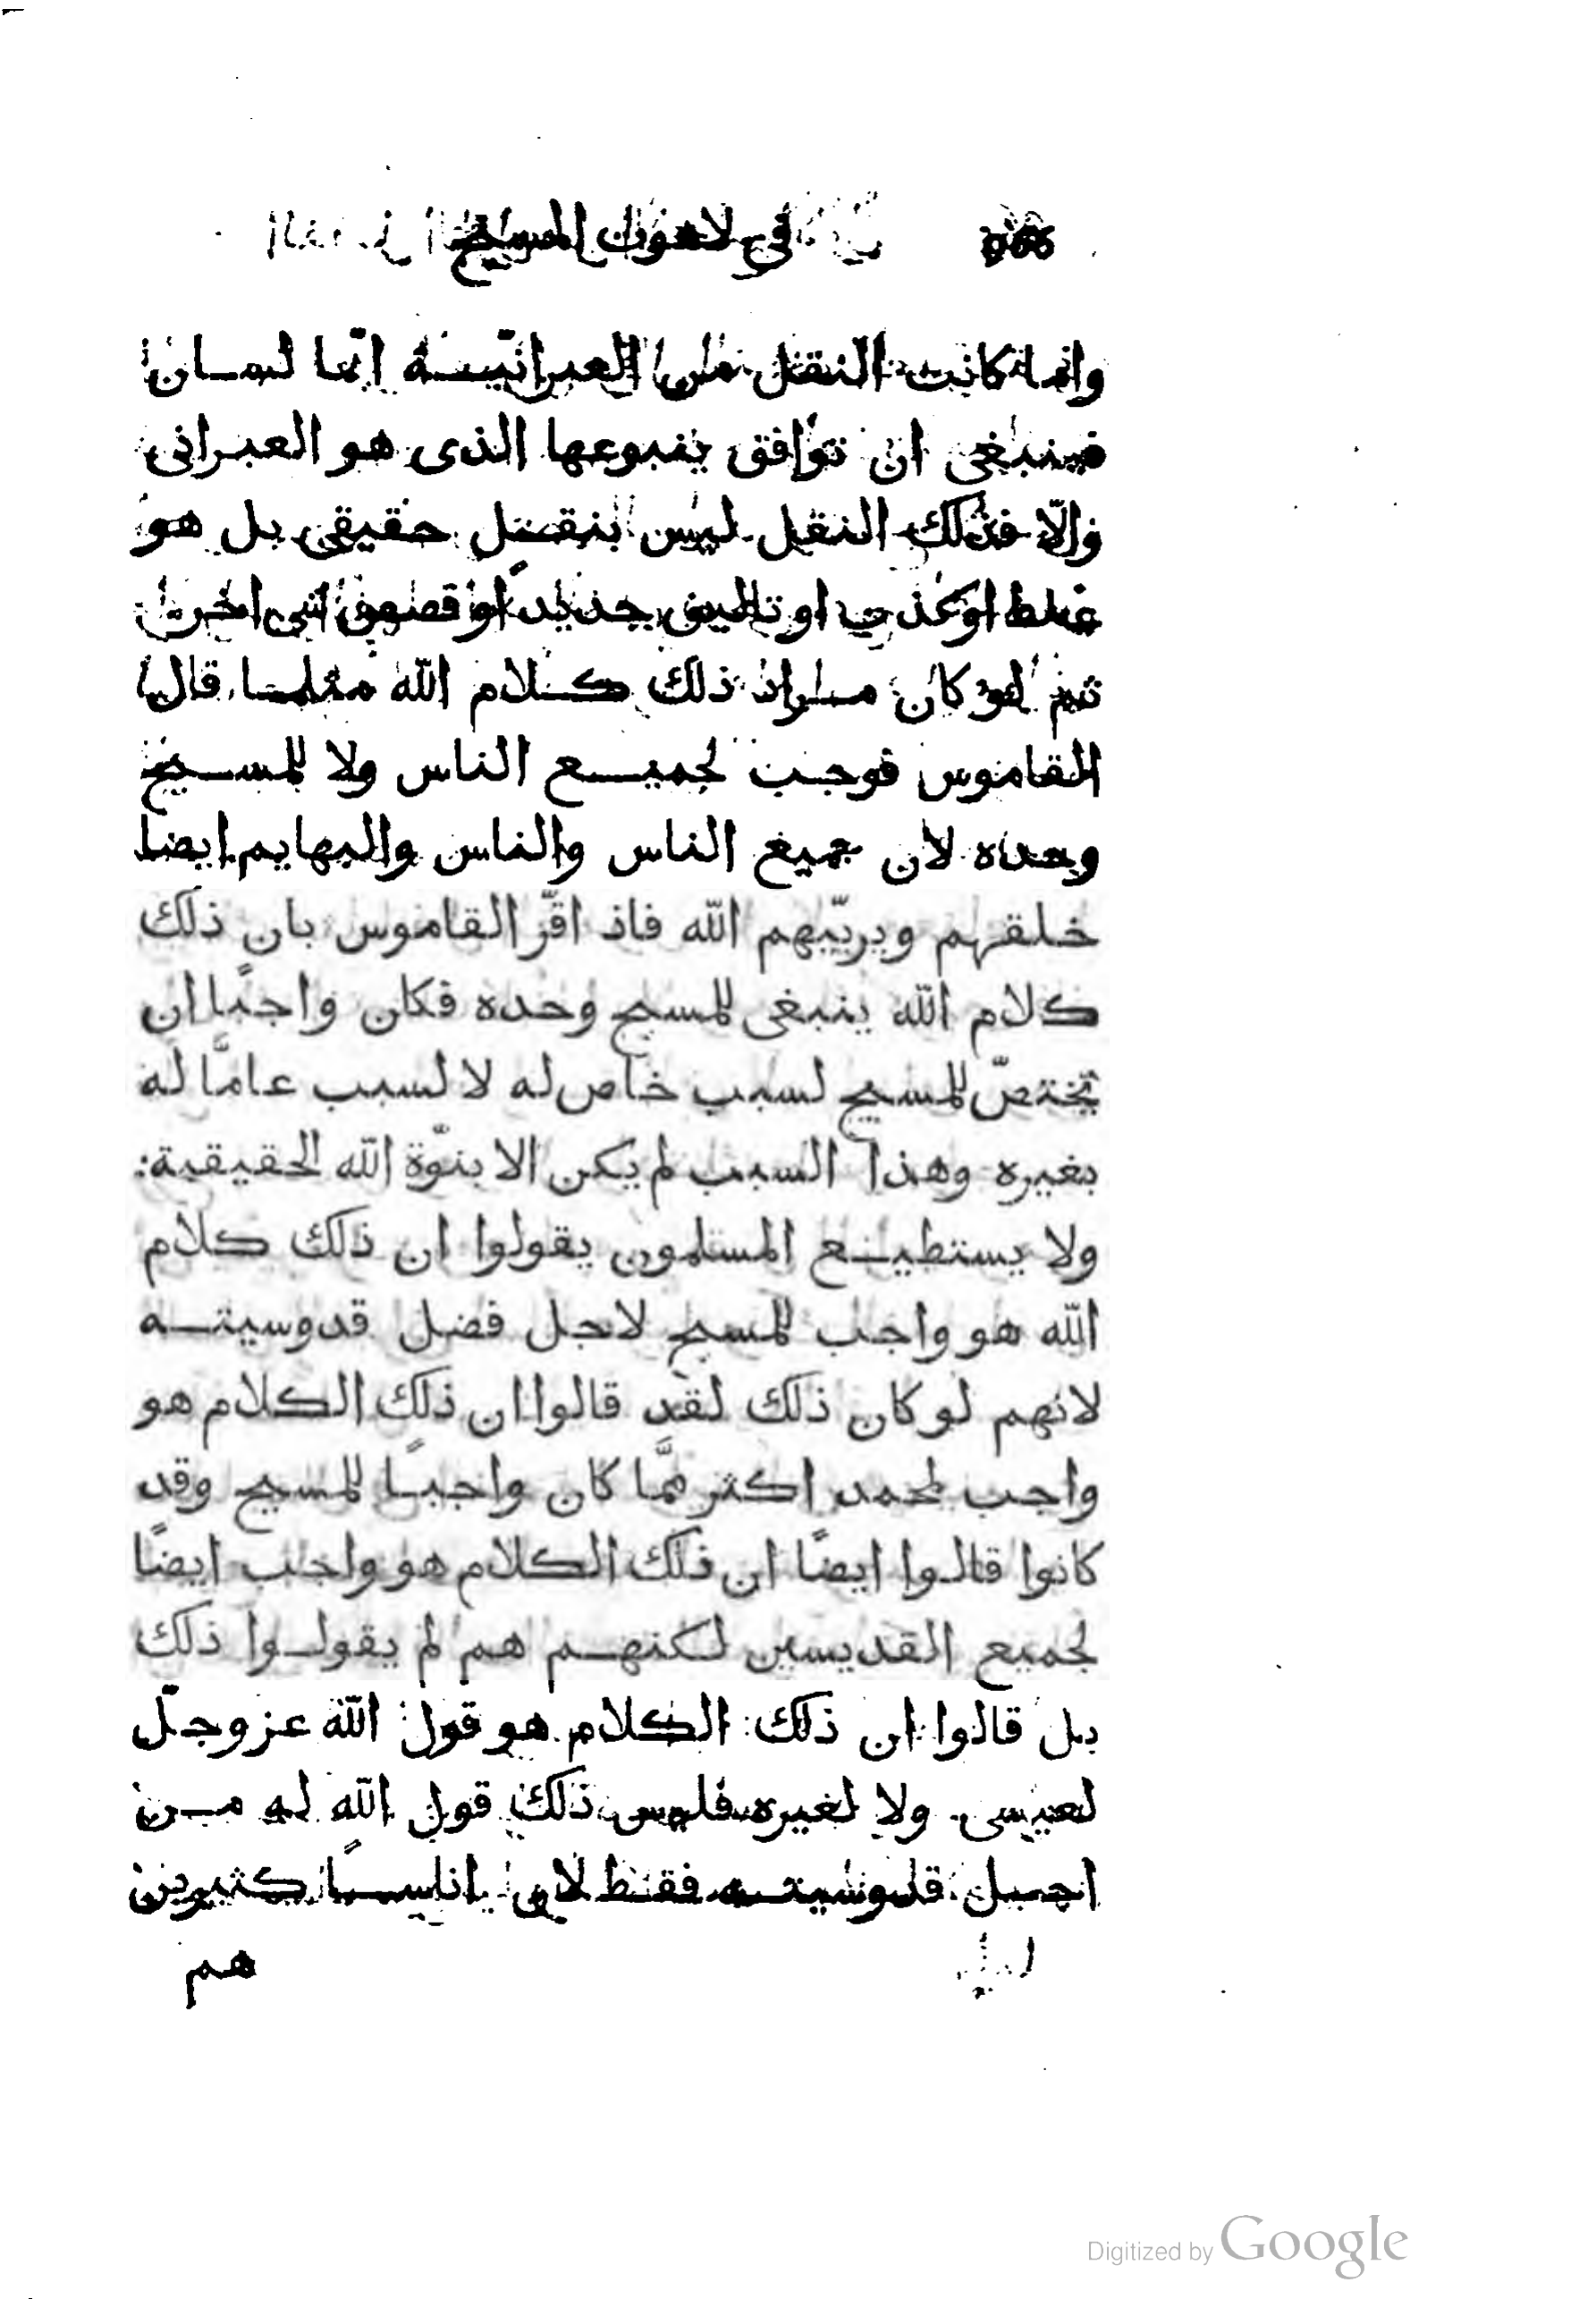 في لاهوت المسيح
وانما كانت النقل من العبرانيّة ايّما لسان
فينبغى ان توافق ينبوعها الذى هو العبرانى
والّا فذلك النقل ليس بنقل حقيقى بل هو
غلط او كذب او تاليف جديد او قصص اخر
ثم لو كان مراد ذلك كلام الله مثلما قال
القاموس فوجب لجميع الناس ولا للمسيح
وحده لان جميع الناس والناس والبهايم ايضا
خلقهم ويربّيهم الله فاذ اقرّ القاموس بان ذلك
كلام الله ينبغى للمسيح وحده فكان واجبًا ان
تختصّ للمسيح لسبب خاص له لا لسبب عامًّا له
بغيره وهذا السبب لم يكن الا بنوّة الله الحقيقية:
ولا يستطيع المسلمون يقولوا ان ذلك كلام
الله هو واجب للمسيح لاجل فضل قدوسيته
لانهم لو كان ذلك لقد قالوا ان ذلك الكلام هو
واجب لمحمد اكثر ممَّا كان واجبًا للمسيح وقد
كانوا قالوا ايضًا ان ذلك الكلام هو واجب ايضًا
لجميع القديسين لكنهم هم لم يقولوا ذلك
بل قالوا ان ذلك الكلام هو قول الله عز وجلّ
لعيسى ولا لغيره فليس ذلك قول الله له من
اجل قدوسيته فقط لان اناسًا كثيرين
هم
Digitized by Google